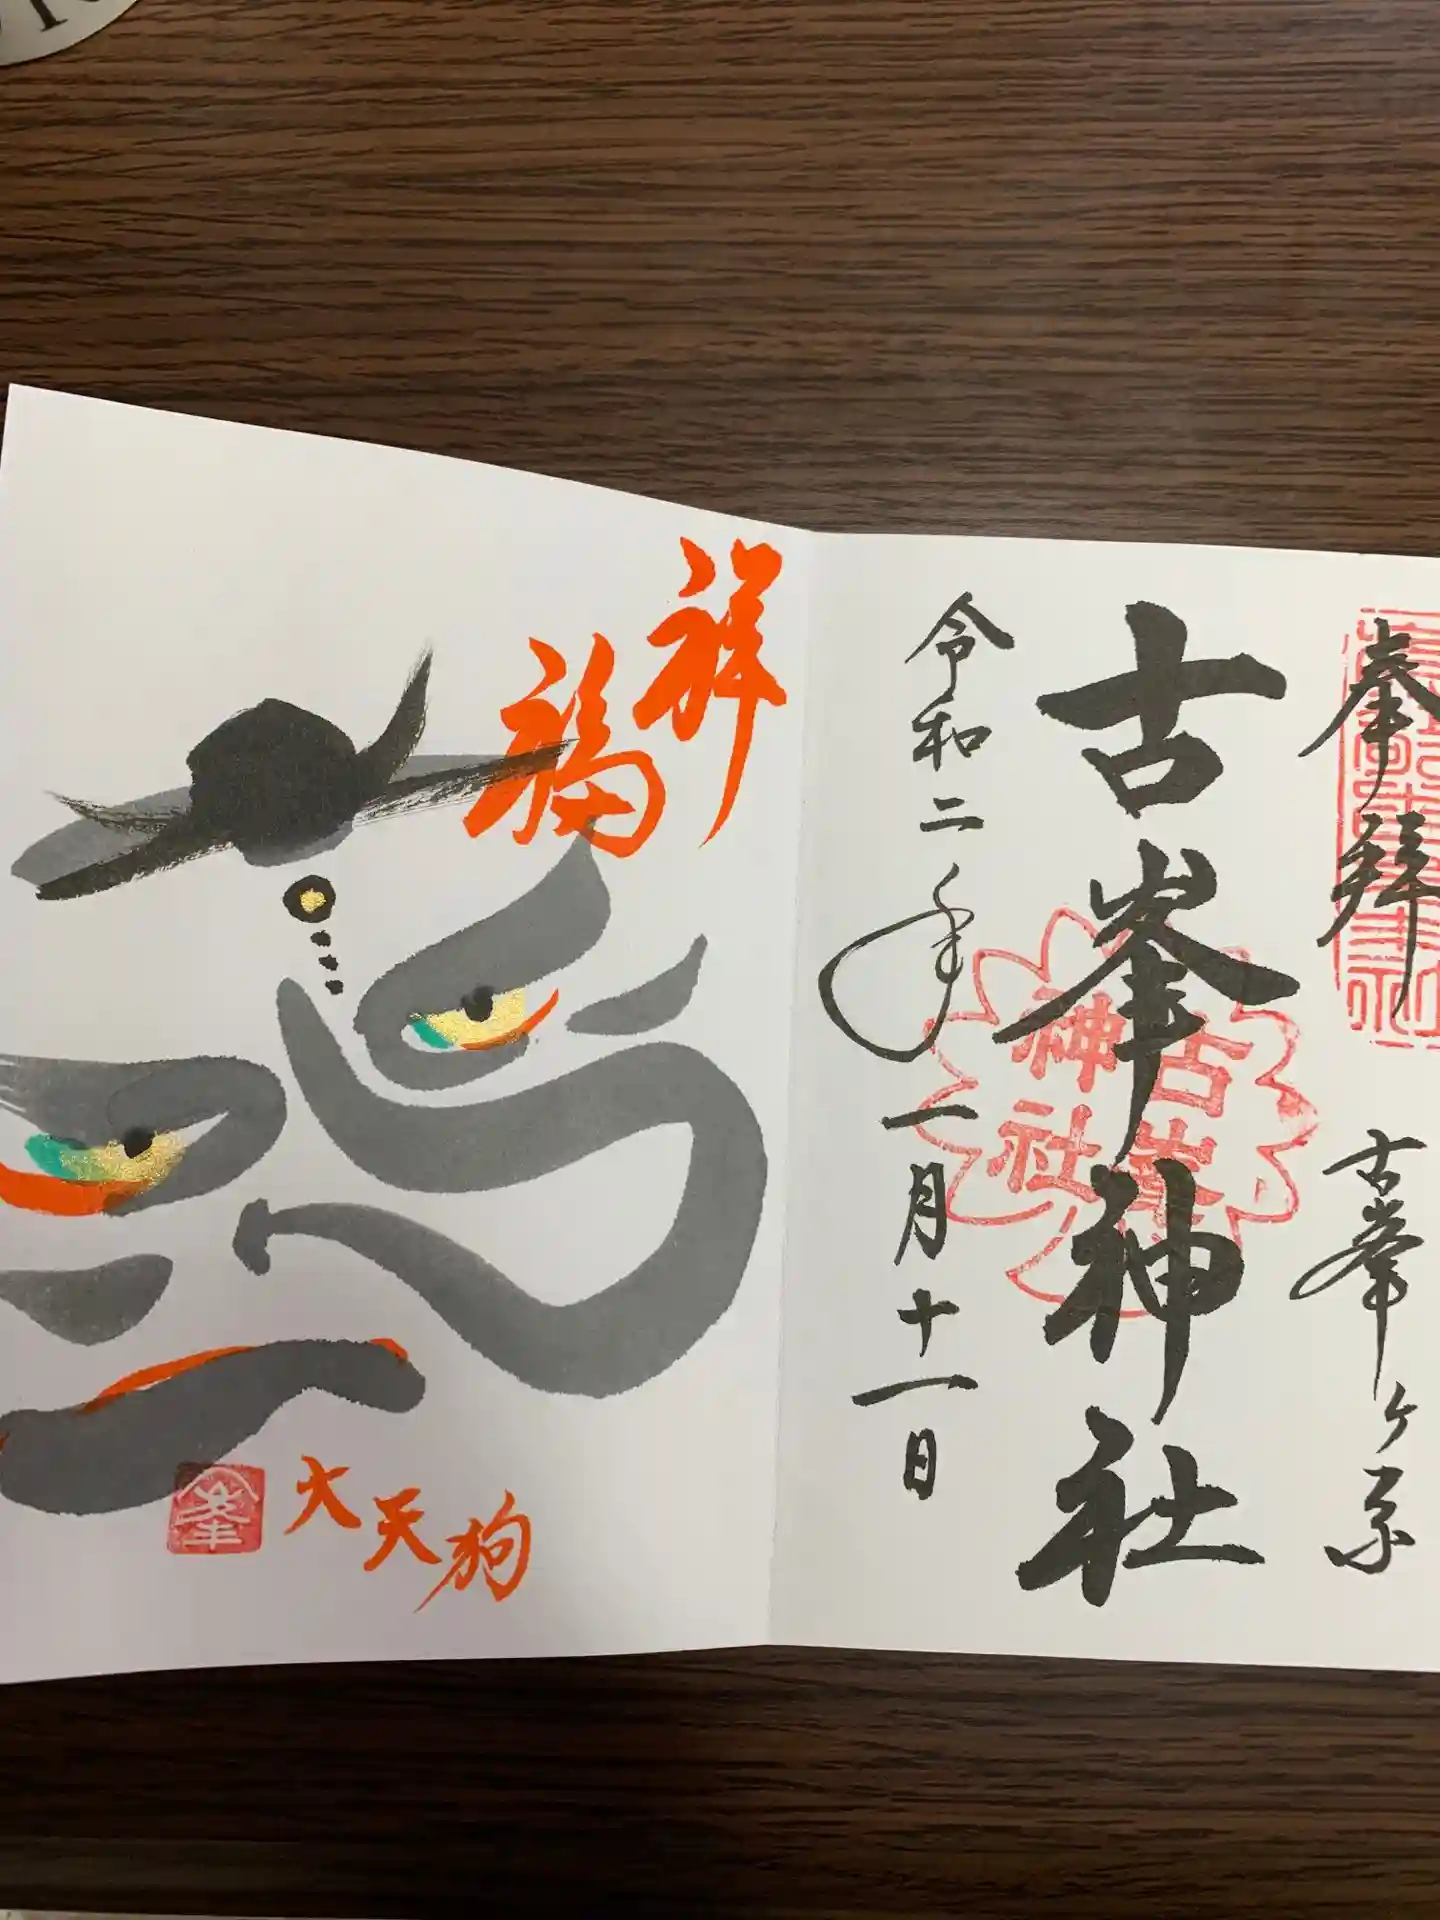 奉拝
古峯ヶ原
古峯神社
古峯神社
令和二年一月十一日
祥福
大天狗
峯